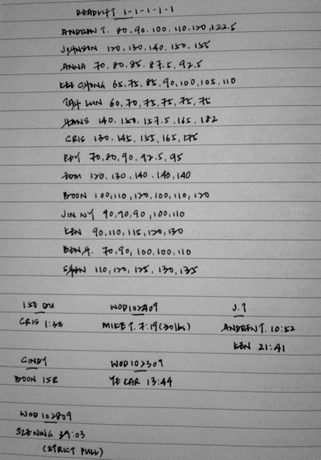 DEADLIFT 1-1-1-1-1
ANDREW T. 80, 90, 100, 110, 120, 122.5
JOHNSON 120, 130, 140, 150, 155
ANNA 70, 80, 85, 87.5, 92.5
KEE CHONG 65, 75, 85, 90, 100, 105, 110
LUN 60, 70, 75, 75, 75, 75
HANS 140, 150, 157.5, 165, 182
CRIS 130, 145, 155, 165, 175
70, 80, 90, 92.5, 95
120, 130, 140, 140, 140
BOON 100, 110, 120, 100, 110, 120
JIN NY 90, 90, 90, 100, 110
KEN 90, 110, 115, 120, 130
BEN H. 70, 90, 100, 100, 110
110, 120, 125, 130, 135
150 DU
CRIS 1:33
WOD102409
MIKE T. 7:19 (30lb)
J.T
ANDREW T. 10:52
KEN 21:41
CINDY
BOON 15R
WOD102309
YE CAR 13:44
WOD102809
SZENING 39:03
(STRICT PULL)